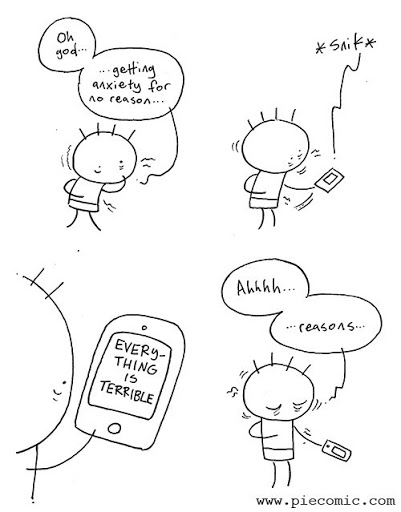 Oh
god...
...getting
anxiety for
no reason...
*snik*
EVERY-
THING
IS
TERRIBLE
Ahhhh...
...reasons...
www.piecomic.com